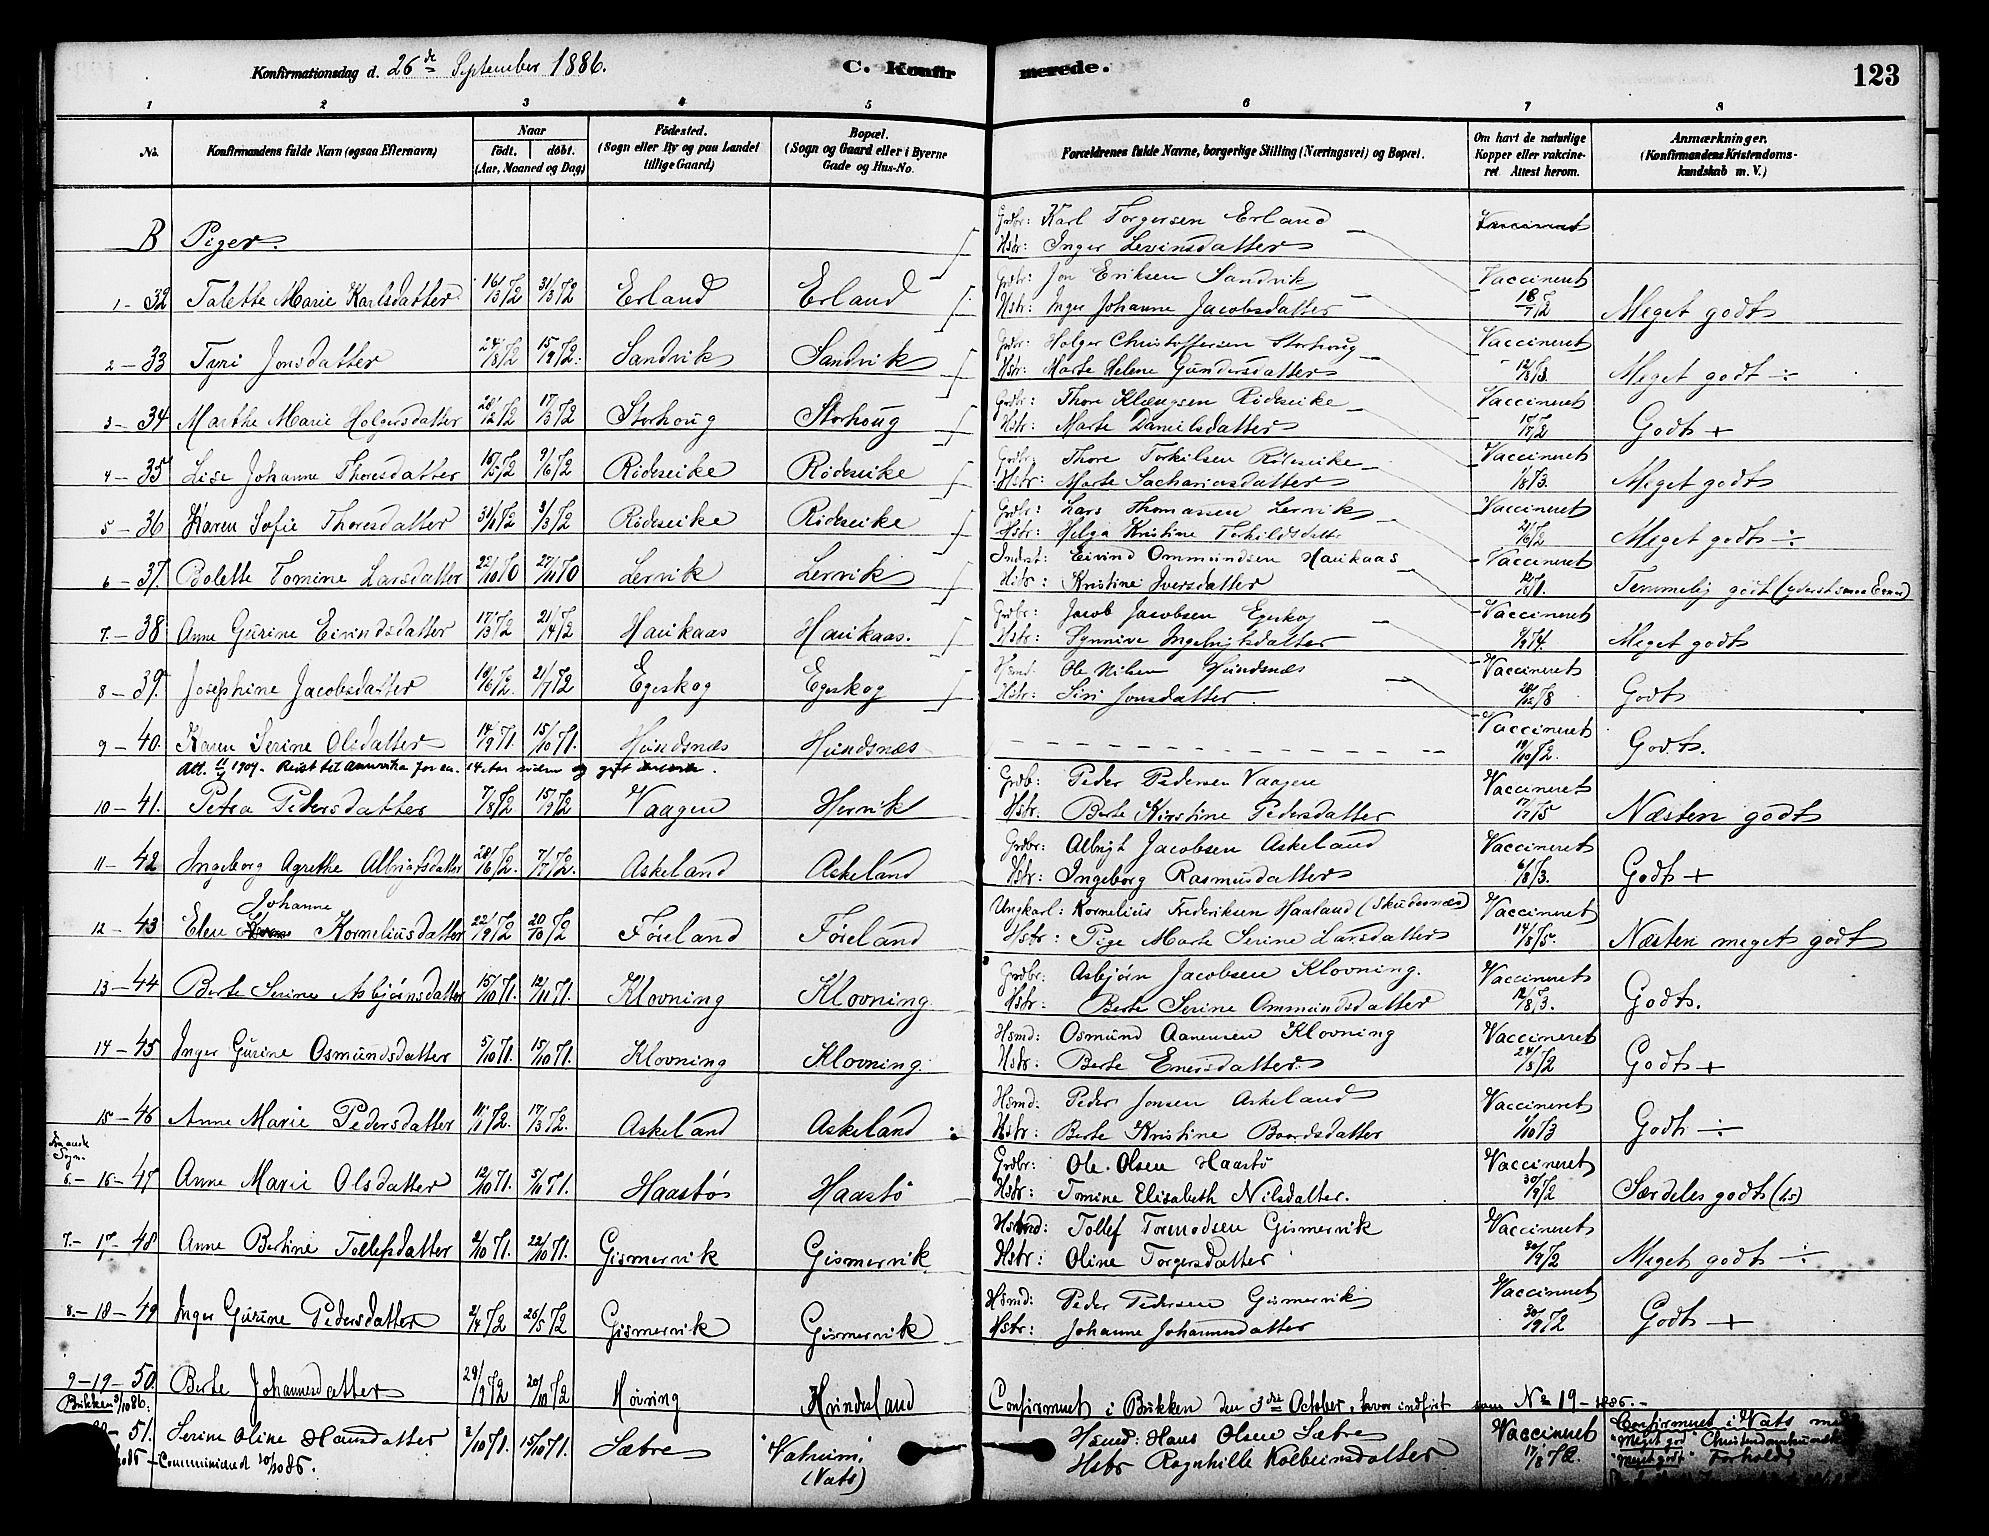 Konfirmationsdag d. 26de September 1886.
C. Konfirmerede.
123
1 2 3 4 5 6 7 8
No.
Konfirmandens fulde Navn (ogsaa Efternavn)
Naar
født. døbt.
(Aar, Maaned og Dag)
Fødested.
(Sogn eller By og paa Landet
tillige Gaard)
Bopæl.
(Sogn og Gaard eller i Byerne
Gade og Hus-No.
Forældrenes fulde Navne, borgerlige Stilling (Næringsvei) og Bopæl.
Om havt de naturlige
Kopper eller vakcine-
ret Attest herom.
Anmærkninger.
(Konfirmandens Kristendoms-
kundskab m. V.)
B Piger.
Grdbr: Karl Torgersen Erland
Hstr: Inger Levinsdatter
Vaccineret
1-32 Talette Marie Karlsdatter 16/3 72 31/3 72 Erland Erland
Grdbr: Jon Eriksen Sandvik
Hstr: Inger Johanne Jacobsdatter
Vaccineret 18/7 72 Meget godt
2-33 Tyri Jonsdatter 24/8 72 15/9 72. Sandvik Sandvik
Grdbr: Holger Christoffersen Storhoug
Hstr: Marte Helene Gundersdatter
Vaccineret 12/8 73. Meget godt ÷
3-34 Marthe Marie Holgersdatter 17/3 72 Storhoug Storhoug
Grdbr: Thore Klængsen Rødseike
Hstr: Marte Danielsdatter
Vaccineret 17/7 72 Godt +
4-35 Lise Johanne Thoresdatter 9/6 72 Rødseike Rødseike
Grdbr: Thore Torkilsen Rødseike
Hstr: Marte Sachariasdatter
Vaccineret 1/8 73. Meget godt
5-36 Karen Sofie Thoresdatter 3/3 72 Rødseike Rødseike
Grdbr: Lars Thomassen Lervik
Hstr: Helga Kristine Torkildsdatter
Vaccineret 21/6 72 Meget godt ÷
6-37. Bolette Tomine Larsdatter 22/10 70 27/11 70 Lervik Lervik
Indst: Eivind Ommundsen Haukaas
Hstr: Kristine Iversdatter
Vaccineret Temmelig godt
7-38 Anne Gurine Eivindsdatter 17/3 72 21/4 72 Haukaas Haukaas.
Grdbr: Jacob Jacobsen Egeskog
Hstr: Synnive Ingebrigtsdatter
Vaccineret Meget godt
8-39. Josephine Jacobsdatter 18/6 72. 21/7 72 Egeskog Egeskog
Hsmd: Ole Nilsen Hundsnæs
Hstr: Siri Jonsdatter
Vaccineret Godt
9-40. Karen Serine Olsdatter 14/9 71. 15/10 71. Hundsnæs Hundsnæs
Vaccineret 19/10 72. Godt.
Att. 1907. Reist til Amerika for ca. 14 aar siden og gift
10-41. Petra Pedersdatter 7/8 72 15/9 72 Vaagen Hervik
Grdb: Peder Pedersen Vaagen
Hstr: Berte Kirstine Pedersdatter
Vaccineret 17/7 75 Næsten godt
11-42 Ingeborg Agrethe Albrigtsdatter 28/6 72. 7/7 72. Askeland Askeland
Grdbr: Albrigt Jacobsen Askeland
Hstr: Ingeborg Rasmusdatter
Vaccineret 6/8 73. Godt +
Johanne
12-43 Elen Korneliusdatter 22/9 72 20/10 72 Føreland Føreland
Ungkarl: Kornelius Frederiksen Haaland (Skudesnæs)
Hstr: Pige Marte Serine Larsdatter
Vaccineret 14/8 75. Næsten meget godt
13-44 Berte Serine Asbjørnsdatter 15/10 71. 12/11 71. Klovning Klovning.
Grdbr: Asbjørn Jacobsen Klovning.
Hstr: Berte Serine Ommundsdatter
Vaccineret 12/8 73. Godt.
14-45 Inger Gurine Osmundsdatter 5/10 71. 15/10 71. Klovning Klovning.
Hsmd: Osmund Aanensen Klovning
Hstr: Berte Enersdatter.
Vaccineret 24/8 72 Godt +
15-46 Anne Marie Pedersdatter 17/3 72. Askeland Askeland
Hsmd: Peder Jonsen Askeland
Hstr: Berte Kristine Baardsdatter
Vaccineret 1/10 73 Godt ÷
Sogn.
6-16-47 Anne Marie Olsdatter 5/10 71. Haastø Haastø
Grdbr: Ole Olsen Haastø
Hstr: Tomine Elisabeth Nilsdatter.
Vaccineret 30/9 72 Særdeles godt
7.-17-48 Anne Bertine Tollefsdatter 2/10 71. 22/10 71. Gismervik Gismervik.
Hsmd: Tollef Tormodsen Gismervik
Hstr: Oline Torgersdatter
Vaccineret 30/9 72 Meget godt ÷
8.-18-49 Inger Gurine Pedersdatter 2/4 72 26/5 72 Gismervik Gismervik
Hsmd: Peder Pedersen Gismervik
Hstr: Johanne Johannesdatter
Vaccineret 30/9 72 Godt +
9-19-50. Berte Johannesdatter 29/9 72 20/10 72 Høvring Hvindesland
Bukken 3/10 86.
Confirmeret i Bukken den 3die October, hvor indført som No 19-1886.-
51. Serine Oline Hansdatter 2/10 71. 15/10 71. Sæbre Vatnum. (Vats)
Communiceret 10/10 86.
Hsmd: Hans Olsen Sæbre
Hstr Ragnhille Kolbeinsdatter
Vaccineret 17/8 72.
Confirmeret i Vats med
"Meget god" Christendomskundskab
"Meget godt" Forhold